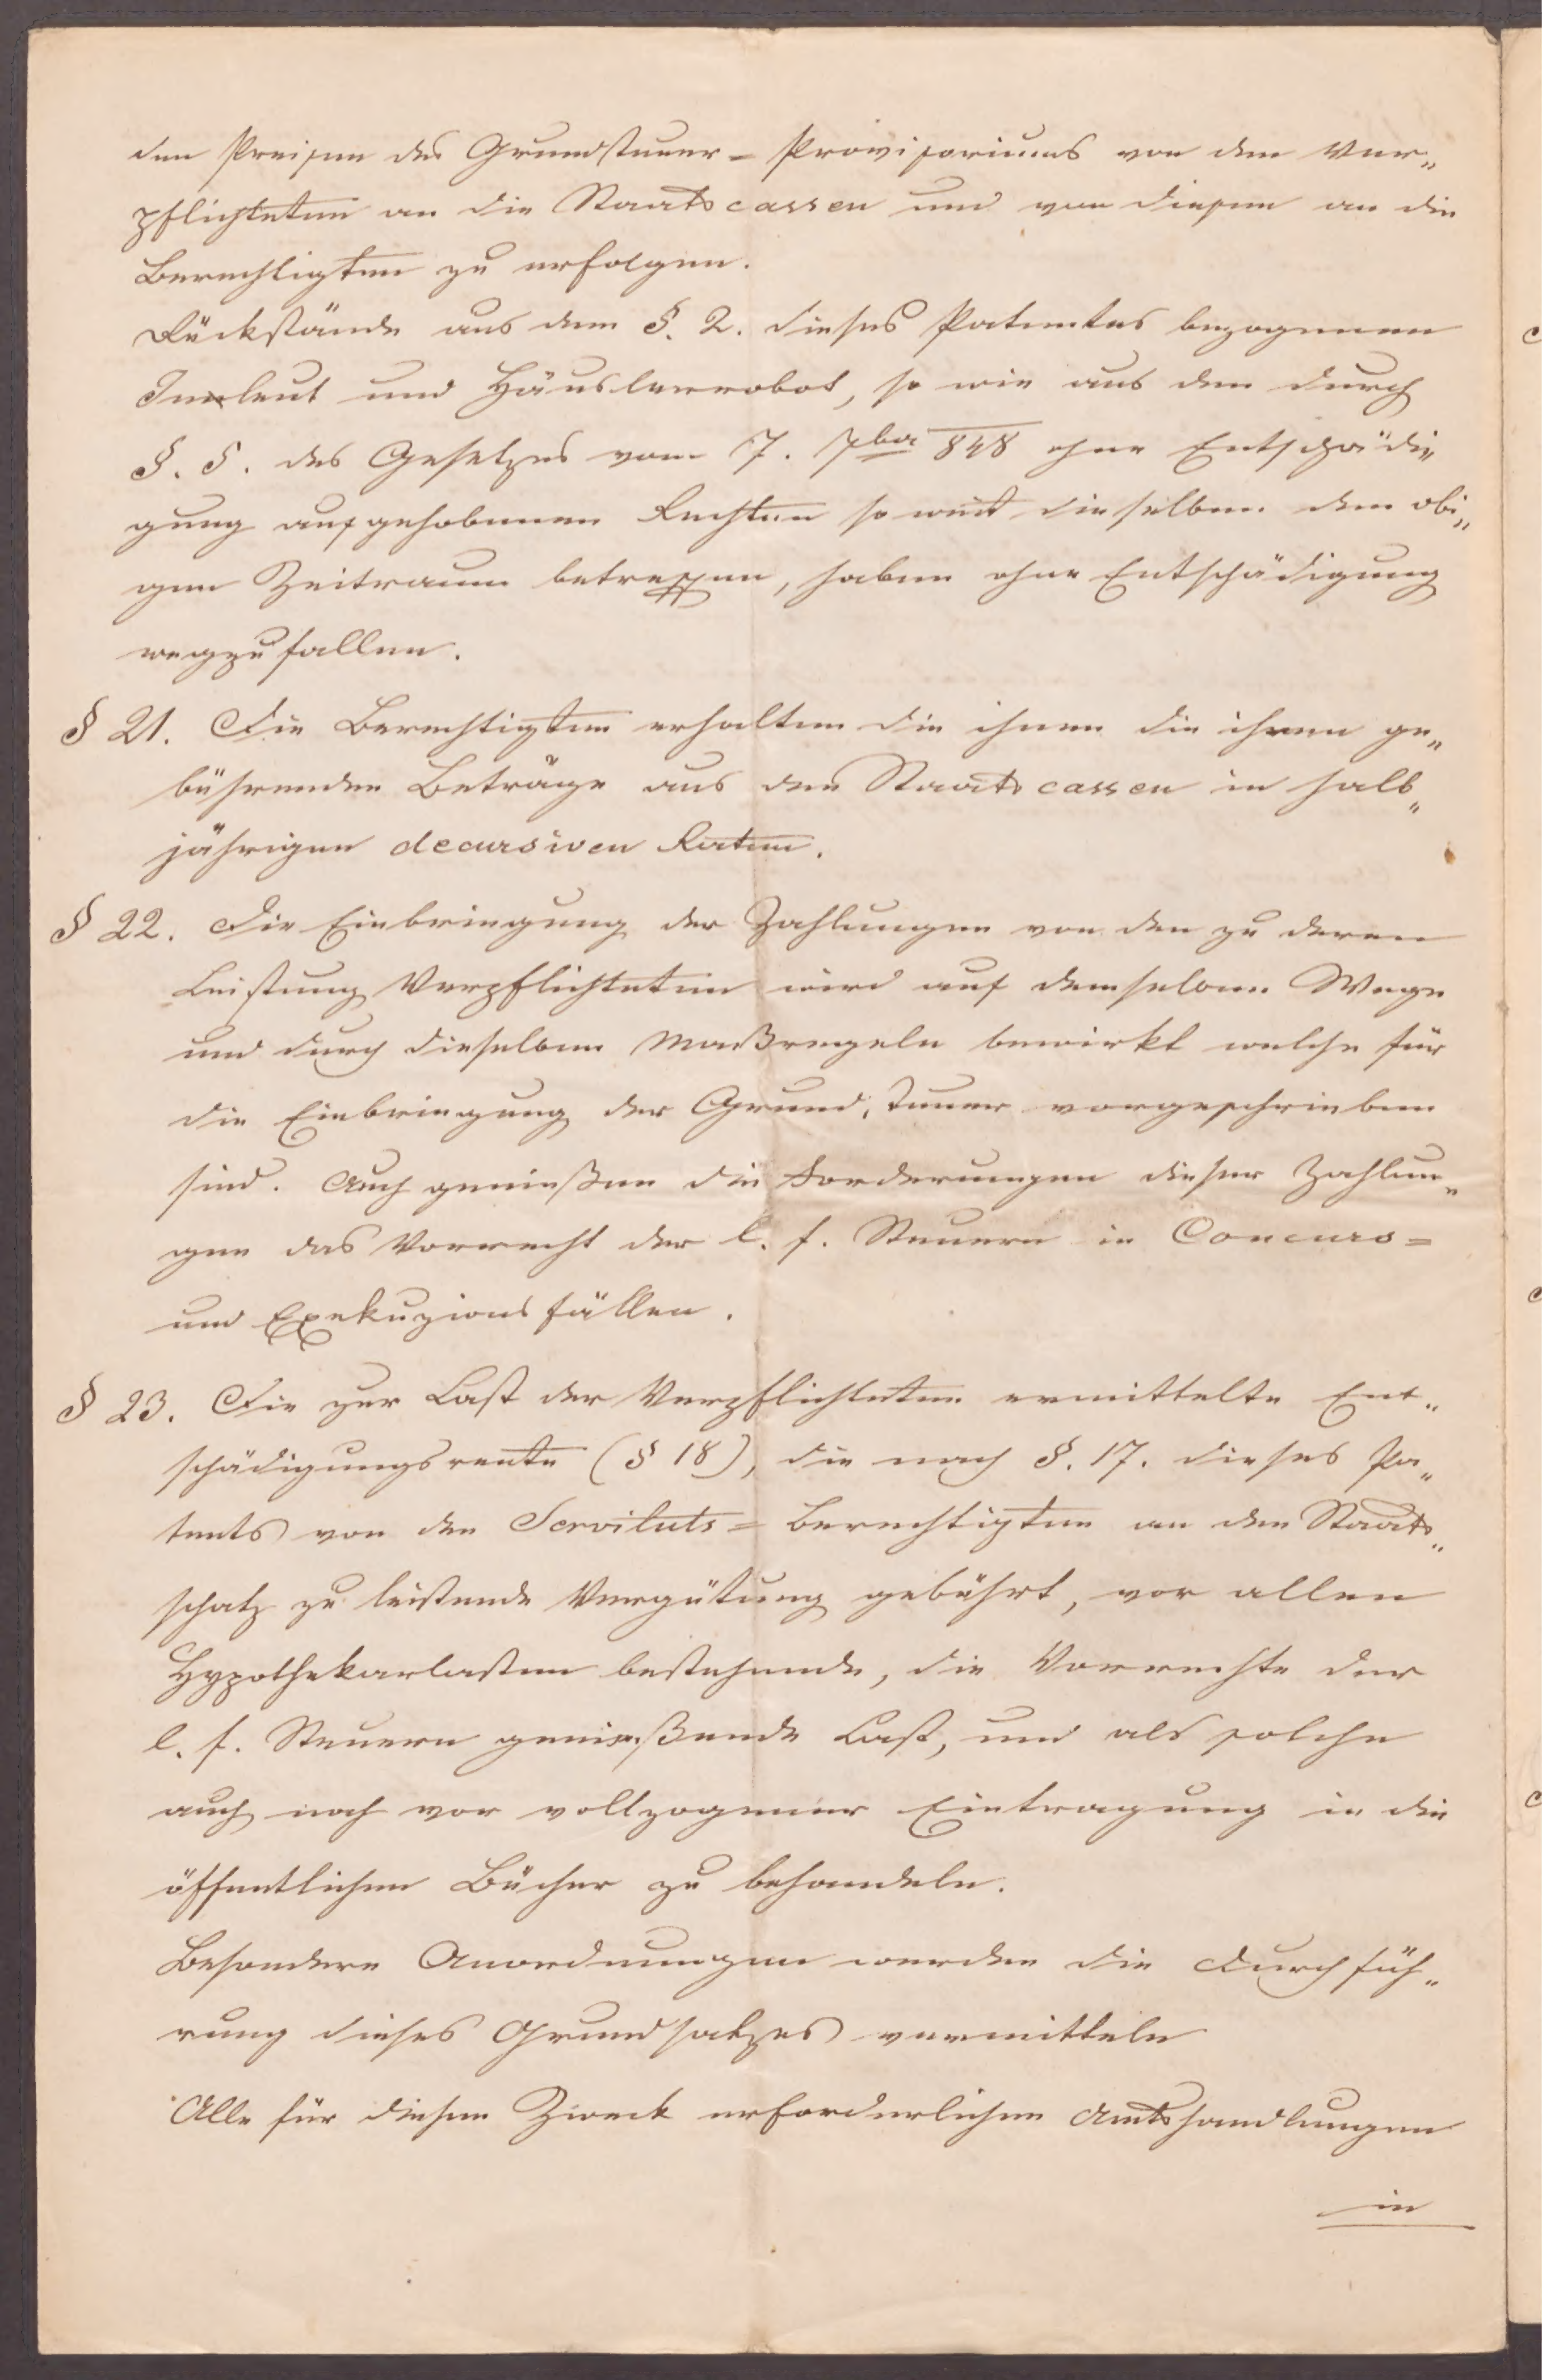 den Preisen des Grundsteuer= Provisoriums von den Ver„
pflichteten an die Staatscassen und von diesen an die
Berechtigten zu erfolgen.
Rückstände aus dem §. 2. dieses Patentes bezogenen
Innleut und Häuslerrobot, so wie aus den durch
§. 5. des Gesetzes vom 7. 7ber 848 ohne Entschädi„
gung aufgehobenen Rechten so weit dieselben den obi„
gen Zeitraum betreffen, haben ohne Entschädigung
wegzufallen.
§ 21. Die Berechtigten erhalten die ihnen die ihnen ge„
bührenden Beträge aus den Staatscassen in halb„
jährigen decursiven Raten.
§ 22. Die Einbringung der Zahlungen von den zu deren
Leistung Verpflichteten wird auf demselben Wege
und durch dieselben Maßregeln bewirkt welche für
die Einbringung der Grundsteuer vorgeschrieben
sind. Auch genießen die Forderungen dieser Zahlun„
gen das Vorrecht der l. f. Steuern in Concurs=
und Exekuzionsfällen.
§ 23. Die zur Last der Verpflichteten ermittelte Ent„
schädigungsrente (§ 18), die nach §. 17. dieses Pa„
tents von den Servituts= Berechtigten an den Staats„
schatz zu leistende Vergütung gebührt, vor allen
Hypothekarlasten bestehende, die Vorrechte der
l. f. Steuern genießende Last, und als solche
auch noch vor vollzogener Eintragung in die
öffentlichen Bücher zu behandeln.
Besondere Anordnungen werden die Durchfüh„
rung dieses Grundsatzes vermitteln
Alle für diesen Zweck erforderlichen Amtshandlungen
in